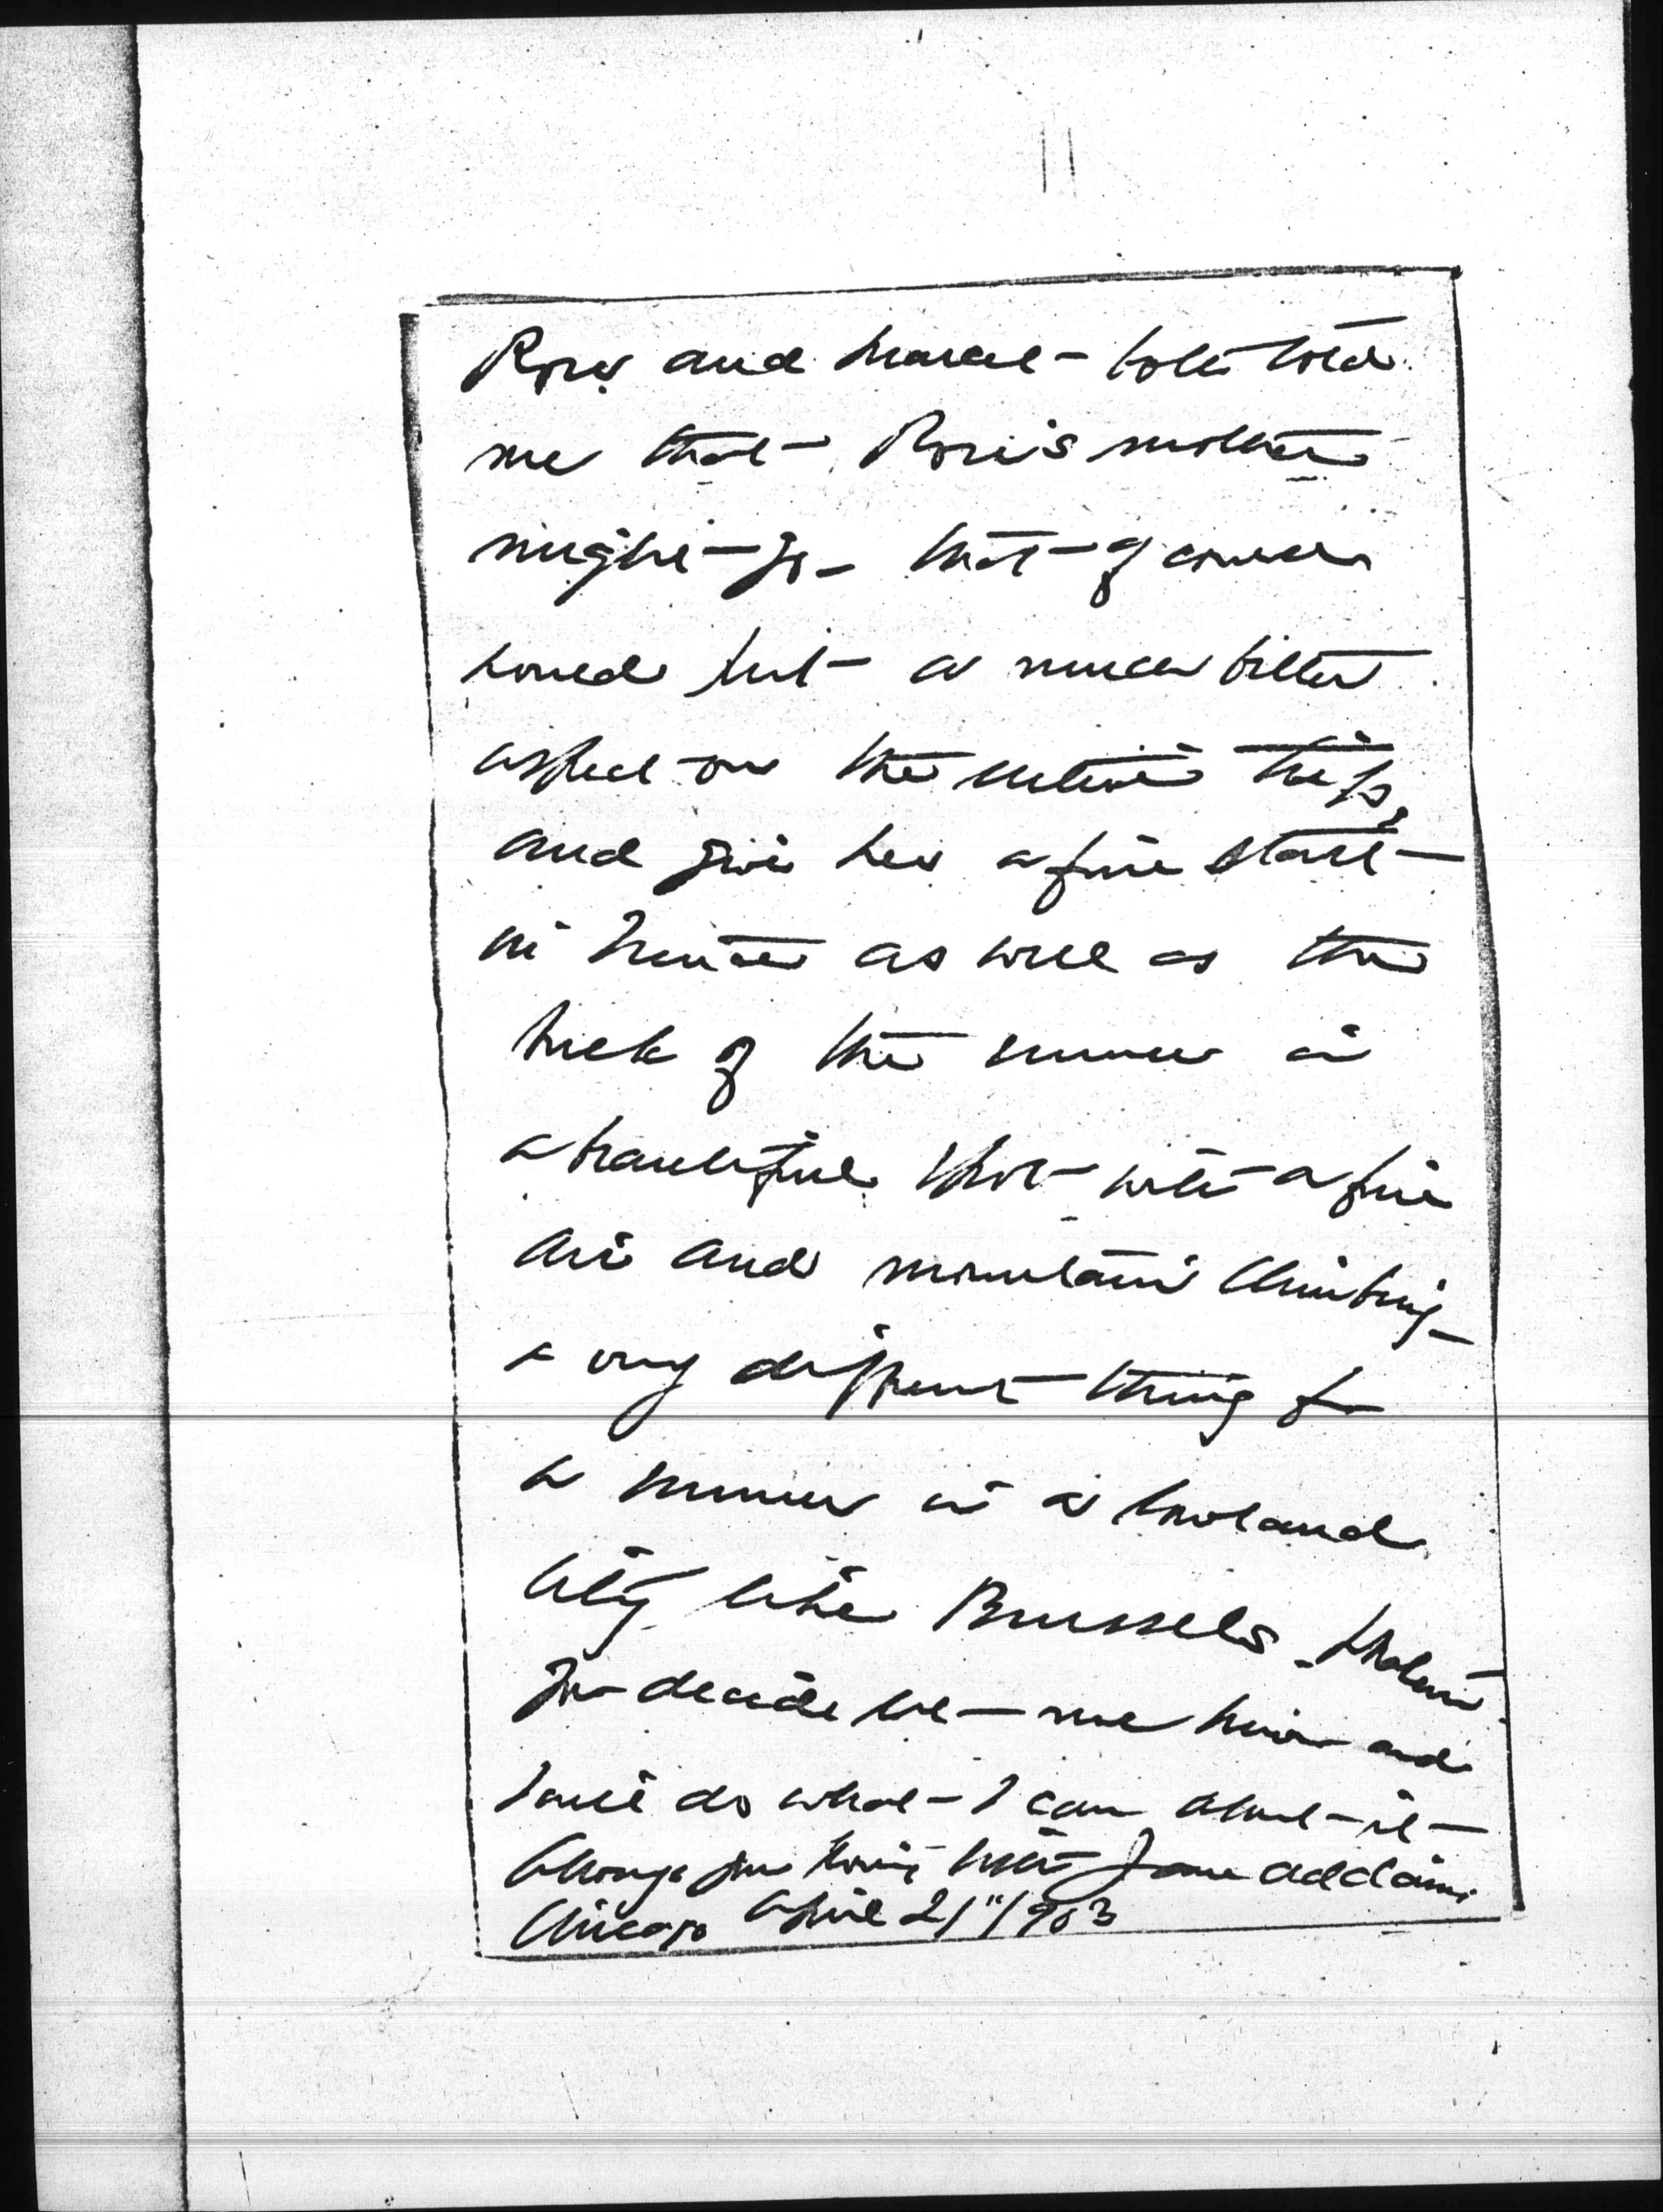 and Marcet both told
me that mother
might go – that of course
would put a much better
aspect on the entire trip,
and give her a fine start
in as well as the
of the summer in
a beautiful spot with a fine
air and mountain climbing –
a very different thing fr
a summer in a hot and
city like Brussels. Whatever
you decide let me know and
I will do what I can about it
Always your loving Jane Addams
Chicago April 21" 1903